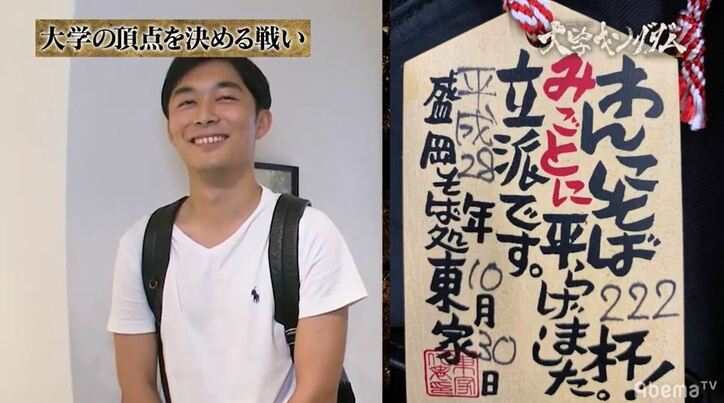 大学の頂点を決める戦い
大学キングダム
わんこそば222杯!
みごとに平らげました。
立派です。
平成28年10月30日
盛岡そば処東家
AbemaTV